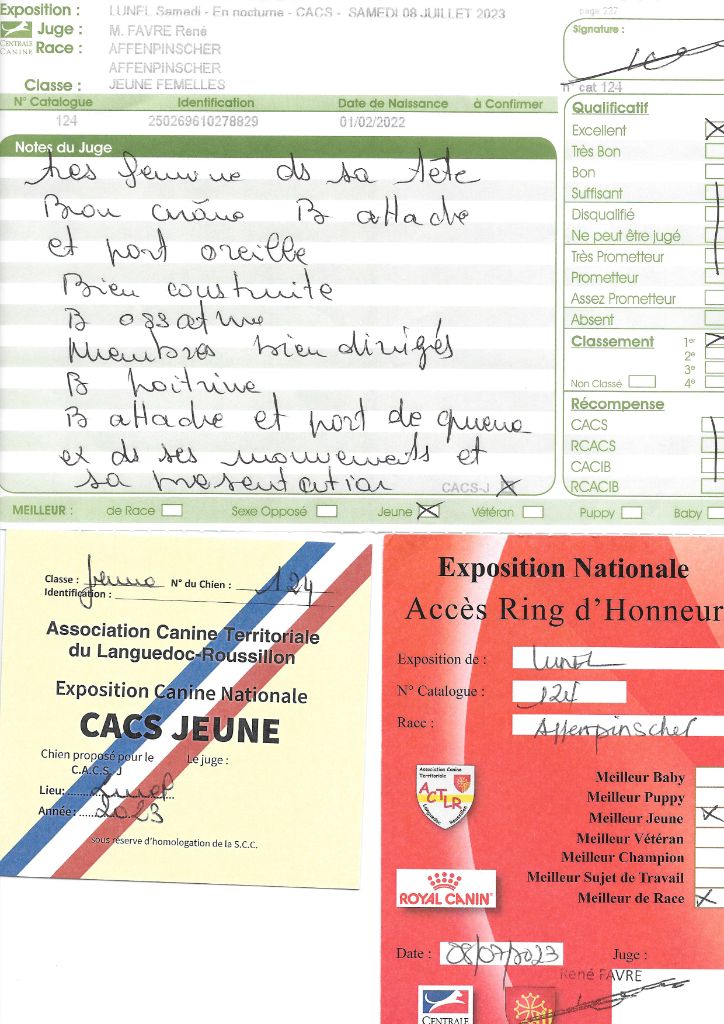 Exposition : LUNEL Samedi - En nocturne - CACS - SAMEDI 08 JUILLET 2023
page 227
Juge : M. FAVRE René
CENTRALE CANINE
Race : AFFENPINSCHER
AFFENPINSCHER
Classe : JEUNE FEMELLES
Signature :
n° cat 124
N° Catalogue Identification Date de Naissance à Confirmer
124 250269610278829 01/02/2022
Notes du Juge
très femme ds sa tête
Bon crâne B attache
et port oreille
Bien construite
B ossature
Membres bien dirigés
B poitrine
B attache et port de queue
ex ds ses mouvements et
sa présentation
CACS-J
Qualificatif
Excellent
Très Bon
Bon
Suffisant
Disqualifié
Ne peut être jugé
Très Prometteur
Prometteur
Assez Prometteur
Absent
Classement 1er
2e
3e
Non Classé 4e
Récompense
CACS
RCACS
CACIB
RCACIB
MEILLEUR : de Race Sexe Opposé Jeune Vétéran Puppy Baby
Classe : Jeune N° du Chien : 124
Identification :
Association Canine Territoriale
du Languedoc-Roussillon
Exposition Canine Nationale
CACS JEUNE
Chien proposé pour le Le juge :
C.A.C.S. J
Lieu: Lunel
Année: 2023
sous réserve d'homologation de la S.C.C.
Exposition Nationale
Accès Ring d'Honneur
Exposition de : LUNEL
N° Catalogue : 124
Race : Affenpinscher
Association Canine
Territoriale
ACTLR
Languedoc Roussillon
Meilleur Baby
Meilleur Puppy
Meilleur Jeune
Meilleur Vétéran
Meilleur Champion
Meilleur Sujet de Travail
Meilleur de Race
ROYAL CANIN
Date : 08/07/2023 Juge :
René FAVRE
CENTRALE